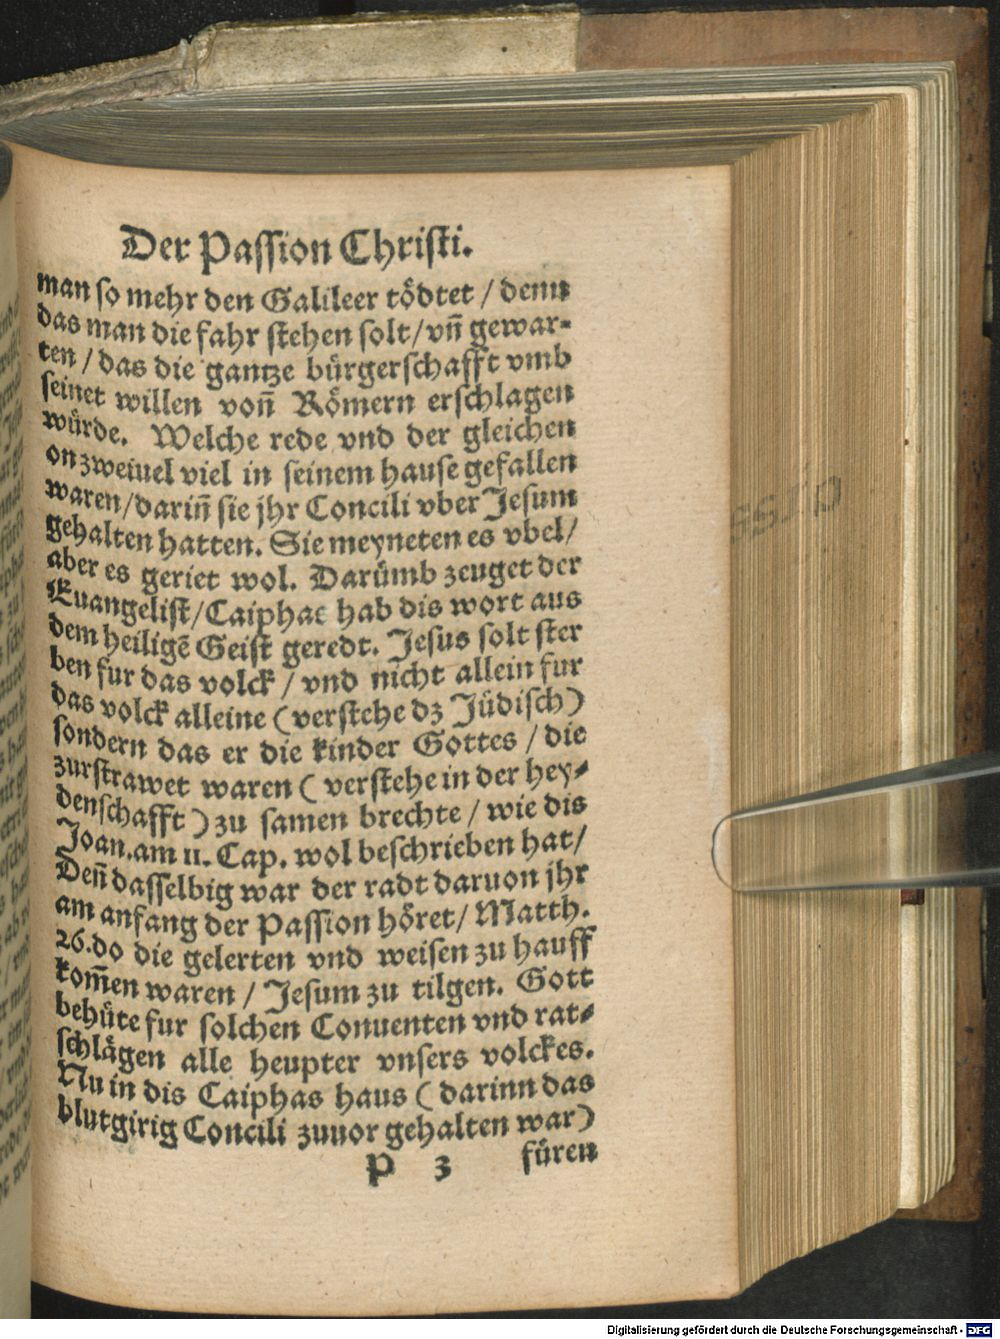 Der Passion Christi.
man so mehr den Galileer tödtet / denn
das man die fahr stehen solt / vñ gewar-
ten / das die gantze bürgerschafft vmb
seinet willen voñ Römern erschlagen
würde. Welche rede vnd der gleichen
on zweiuel viel in seinem hause gefallen
waren / dariñ sie jhr Concili vber Jesum
gehalten hatten. Sie meyneten es vbel /
aber es geriet wol. Darümb zeuget der
Euangelist / Caiphae hab dis wort aus
dem heiligẽ Geist geredt. Jesus solt ster
ben fur das volck / vnd nicht allein fur
das volck alleine (verstehe dz Jüdisch)
sondern das er die kinder Gottes / die
zurstrawet waren ( verstehe in der hey-
denschafft ) zu samen brechte / wie dis
Joan. am 11. Cap. wol beschrieben hat /
Deñ dasselbig war der radt daruon jhr
am anfang der Passion höret / Matth.
26. do die gelerten vnd weisen zu hauff
kom̃en waren / Jesum zu tilgen. Gott
behüte fur solchen Conuenten vnd rat-
schlägen alle heupter vnsers volckes.
Nu in dis Caiphas haus ( darinn das
blutgirig Concili zuuor gehalten war)
P 3 füren
Digitalisierung gefördert durch die Deutsche Forschungsgemeinschaft - DFG